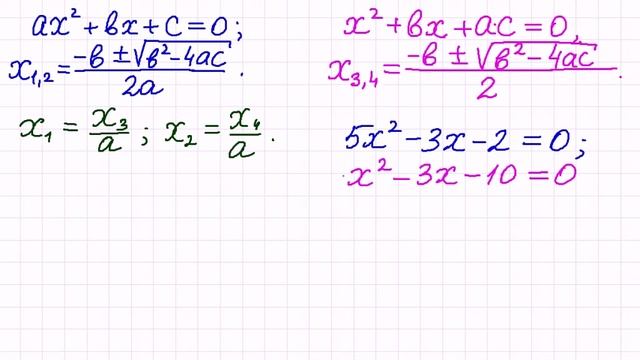 ax² + bx + c = 0;
x₁,₂ = (-b ± √(b² - 4ac)) / 2a.
x₁ = x₃/a ; x₂ = x₄/a.
x² + bx + a·c = 0,
x₃,₄ = (-b ± √(b² - 4ac)) / 2.
5x² - 3x - 2 = 0;
x² - 3x - 10 = 0